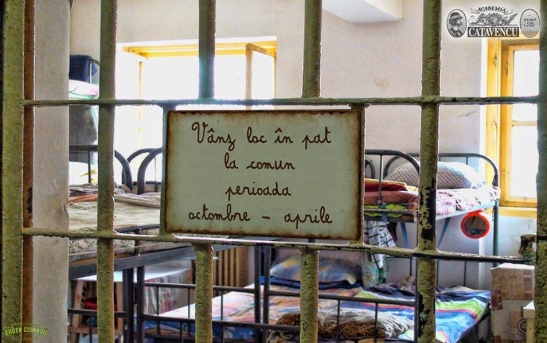 ACADEMIA
CATAVENCU
Vânz loc în pat
la comun
perioada
octombre – aprilie
EUGEN CISMAȘU